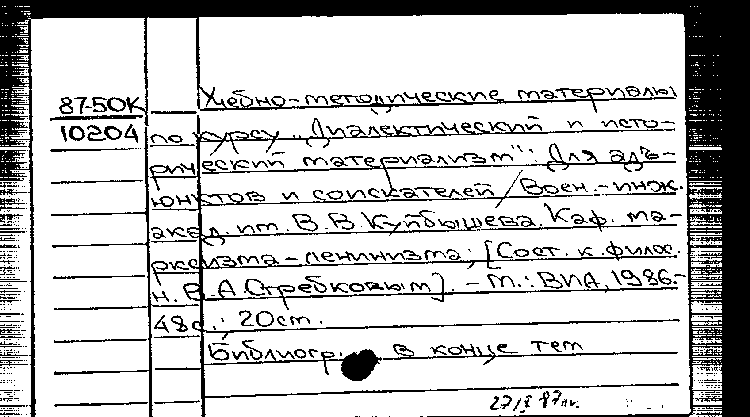 87-50К Учебно-методические материалы
10204 по курсу „Диалектический и исто-
рический материализм“: Для адъ-
юнктов и соискателей / Воен.-инж.
акад. им. В. В. Куйбышева. Каф. ма-
рксизма-ленинизма; [Сост. к. филос.
н. В. А Стребковым]. - М.: ВИА, 1986.-
48с.; 20см.
Библиогр. в конце тем